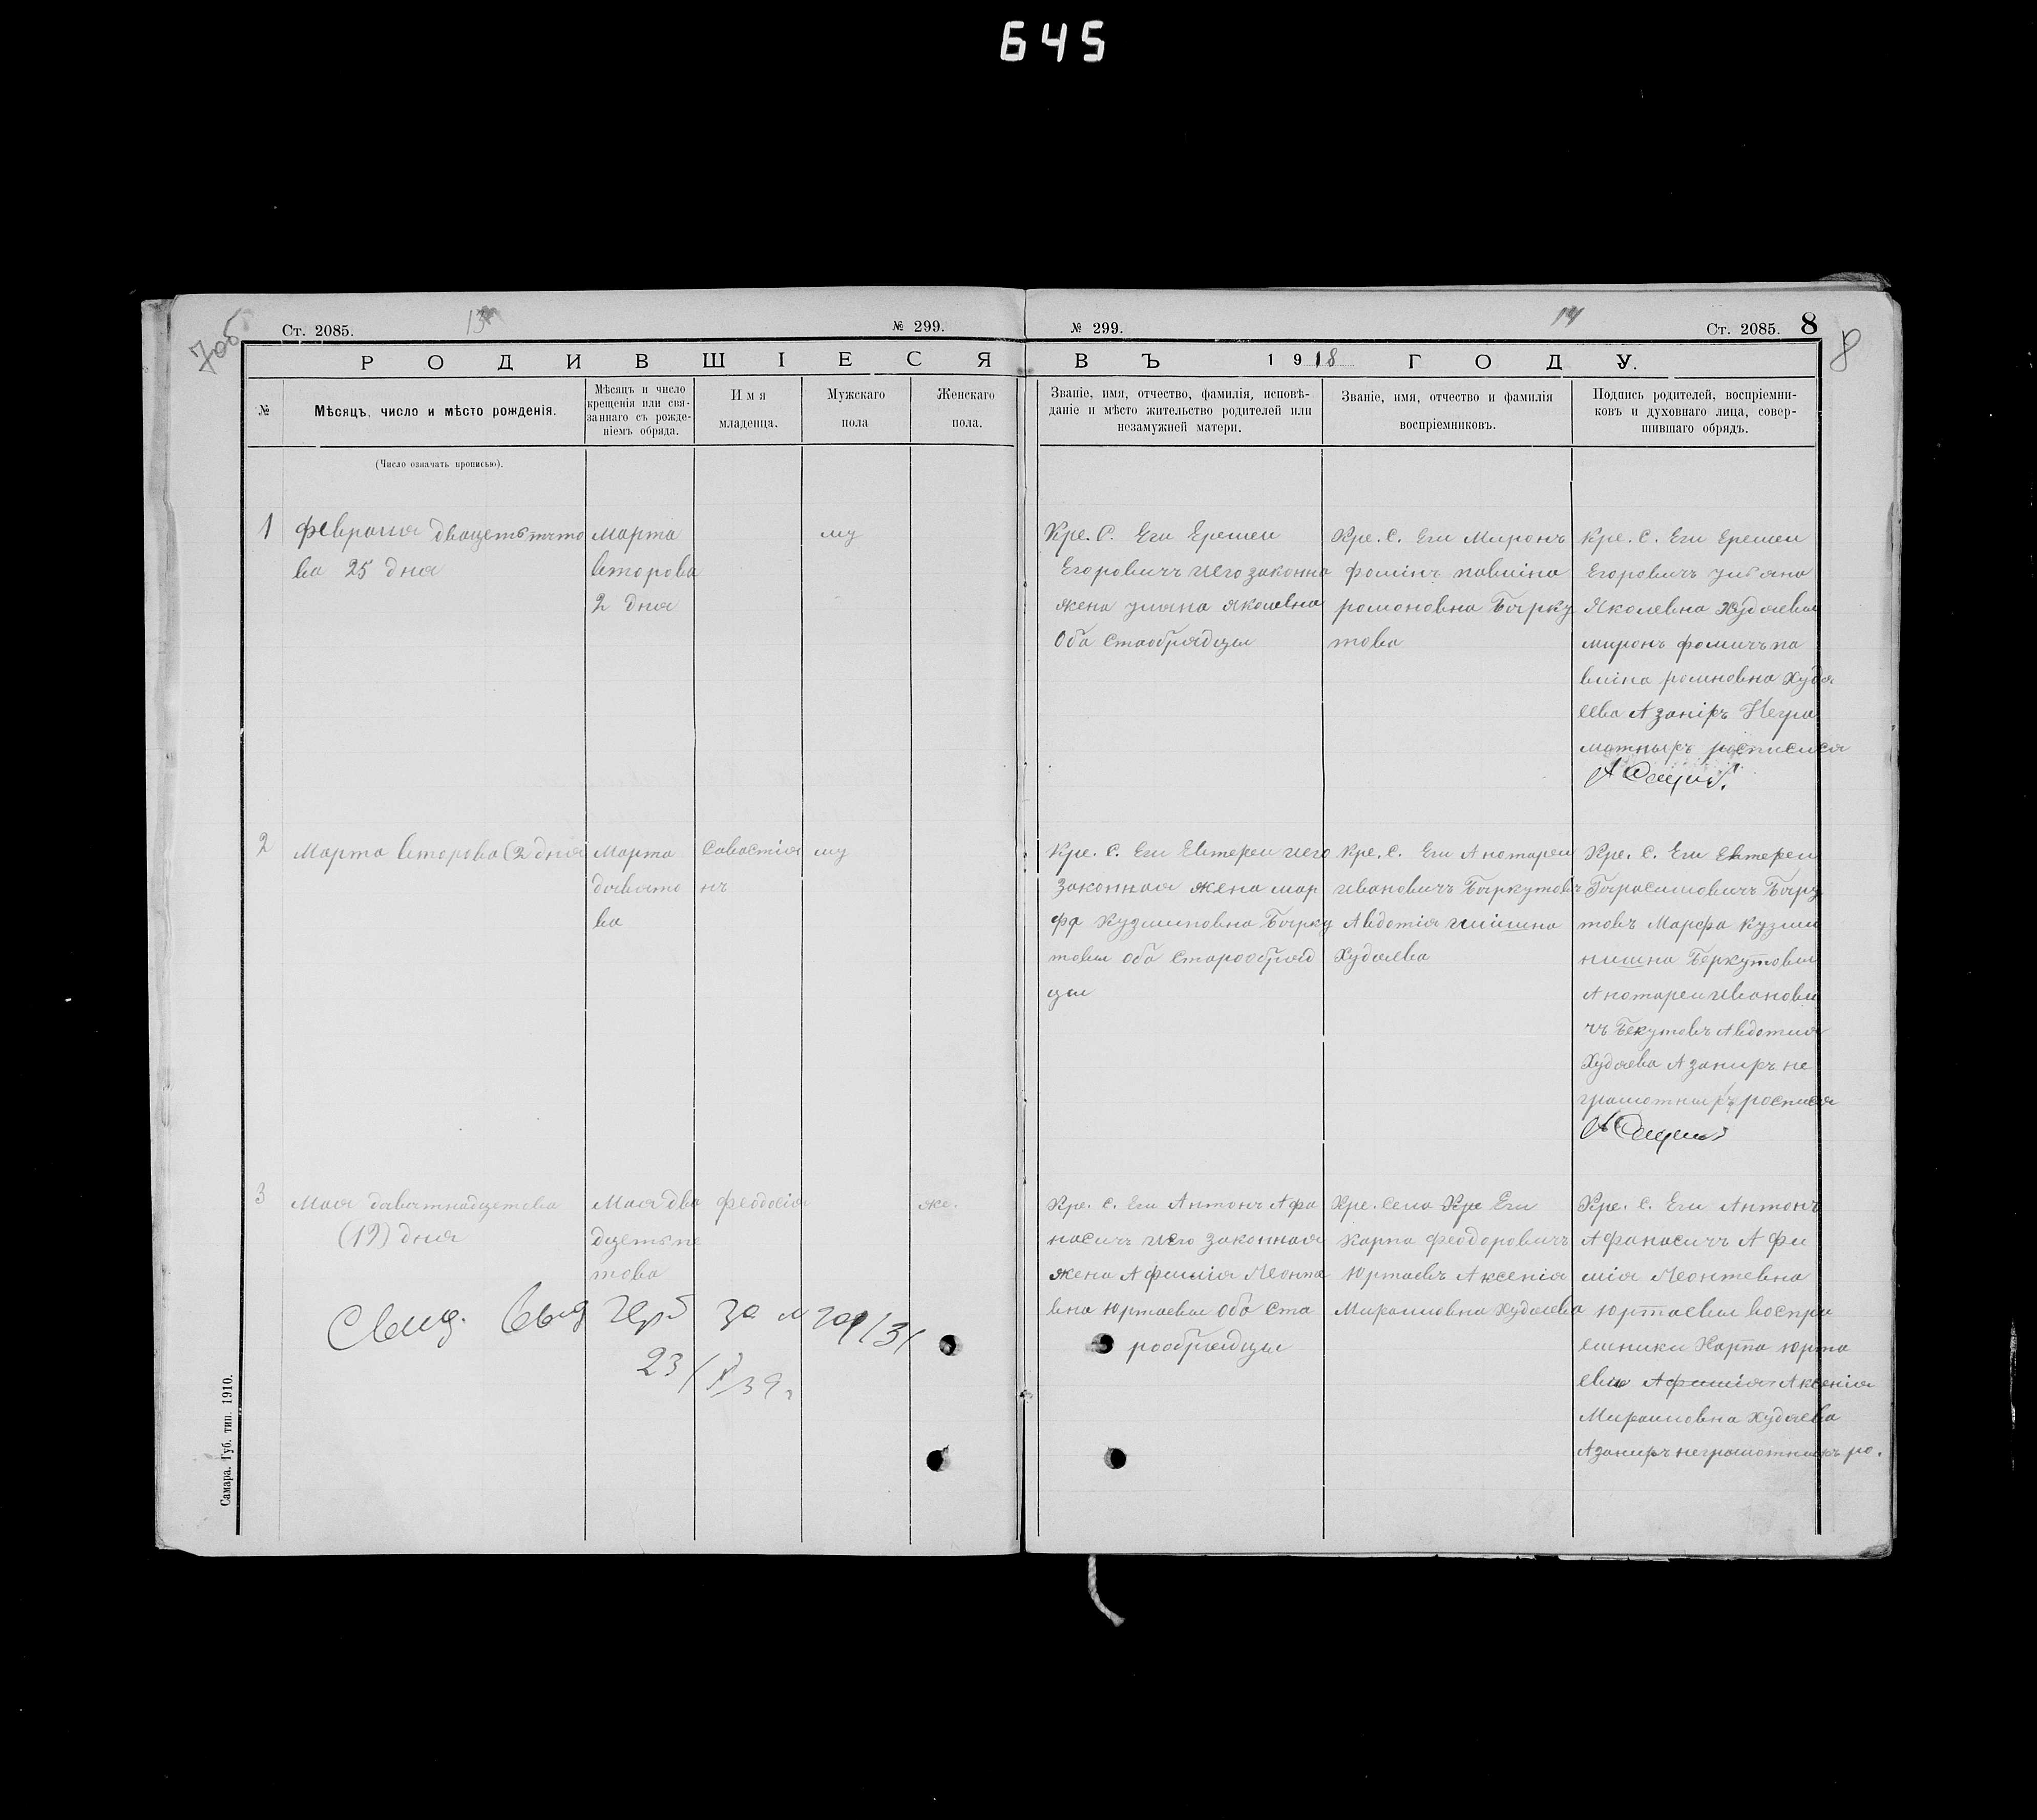 645
Ст. 2085.
13
№ 299.
№ 299.
14
Ст. 2085. 8
7об
8
РОДИВШІЕСЯ
ВЪ 1918 ГОДУ.
№
Мѣсяцъ, число и мѣсто рожденія.
Мѣсяцъ и число
крещенія или свя-
заннаго съ рожде-
ніемъ обряда.
Имя
младенца.
Мужскаго
пола
Женскаго
пола.
Званіе, имя, отчество, фамилія, исповѣ-
даніе и мѣсто жительство родителей или
незамужней матери.
Званіе, имя, отчество и фамилія
воспріемниковъ.
Подпись родителей, воспріемни-
ковъ и духовнаго лица, совер-
шившаго обрядъ.
(Число означать прописью).
1
февраля
ва 25 дня
марта
второва
2 дня
му
Кре. С. Еги Еремеи
Егоровичъ иего законна
жена уляна яколевна
Оба стаобрядцы
Кре. С. Еги Миронъ
фомінъ павліна
романовна Бярку
това
Кре. С. Еги Еремеи
Егоровичъ ульяна
Яколевна Худяевы
миронъ фомичъ па
вліна ромновна Худя
ева А заніхъ Негра
матныхъ росписися
2
Марта второва (2 дня
Марта
давято
ва
Савастія
нъ
му
Кре. С. Еги Евтереи иего
законная жена мар
фа Кузминовна Бярку
товы оба старообряд
цы
Кре. С. Еги Анотареи
ивановичъ Бяркутовъ
Авдотія илиишна
Худяева
Кре. С. Еги Евтереи
Гарасимовичъ Бяру
товъ Марфа Кузми
нишна Беркутовы
Анотареи иванови
чъ Бекутовъ Авдотия
Худяева А занихъ не
грамотныхъ росписи
3
Мая давятнадцетова
(19) дня
Мая два
дцетьпе
това
феодосія
же.
Кре. С. Еги Антонъ Афа
насичъ иего законная
жена Афимія Леонте
вна Юртаевы Оба ста
рообрядцы
Кре. села Кре Еги
Карпа Феодоровичъ
Юртаевъ Аксенія
Мираиловна Худяева
Кре. С. Еги Антонъ
Афанасичъ Афи
мія Леонтевна
Юртаевы воспри
емники Карпа юрта
евы Афимія Аксенія
Мираиловна Худяева
А занихъ неграмотныхъ ро.
Свид. выд за №
23/ 39г
Самара. Губ. тип. 1910.